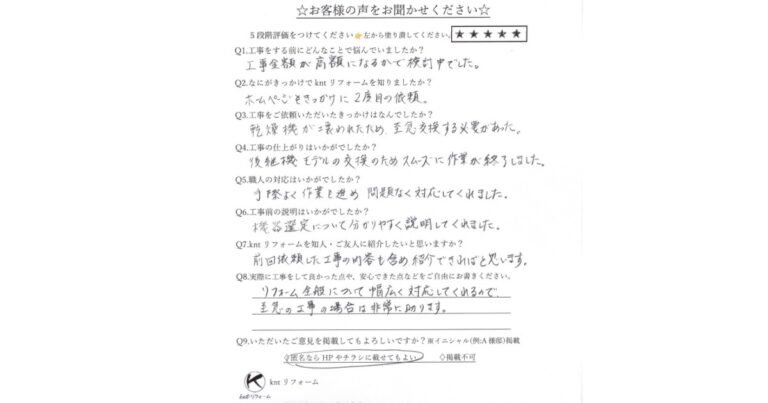 ☆お客様の声をお聞かせください☆
5段階評価をつけてください👉左から塗り潰してください。 ★★★★★
Q1.工事をする前にどんなことで悩んでいましたか？
工事金額が高額になるかで検討中でした。
Q2.なにがきっかけで knt リフォームを知りましたか？
ホームページをきっかけに2度目の依頼。
Q3.工事をご依頼いただいたきっかけはなんでしたか？
乾燥機が壊われたため、至急交換する必要があった。
Q4.工事の仕上がりはいかがでしたか？
後継機モデルの交換のためスムーズに作業が終了しました。
Q5.職人の対応はいかがでしたか？
手際よく作業を進め問題なく対応してくれました。
Q6.工事前の説明はいかがでしたか？
機器選定について分かりやすく説明してくれました。
Q7.knt リフォームを知人・ご友人に紹介したいと思いますか？
前回依頼した工事の内容も含め紹介できればと思います。
Q8.実際に工事をして良かった点や、安心できた点などをご自由にお書きください。
リフォーム全般について幅広く対応してくれるので、
至急の工事の場合は非常に助ります。
Q9.いただいたご意見を掲載してもよろしいですか？※イニシャル(例:A 様邸)掲載
◇匿名なら HP やチラシに載せてもよい ◇掲載不可
K knt リフォーム
kntリフォーム